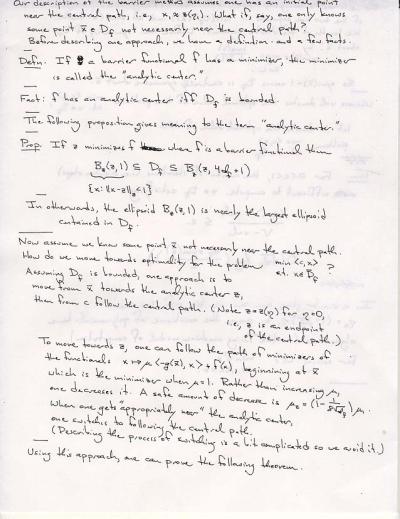 Our description of the barrier method assumes one has an initial point
near the central path, i.e., x₁ ≈ z(η₁). What if, say, one only knows
some point x̄ ∈ D_f not necessarily near the central path?
Before describing one approach, we have a definition and a few facts.
Defn: If a barrier functional f has a minimizer, the minimizer
is called the "analytic center."
Fact: f has an analytic center iff D_f is bounded.
The following proposition gives meaning to the term "analytic center."
Prop: If z minimizes f when f is a barrier functional then
B_z(z,1) ⊆ D_f ⊆ B_z(z, 4ϑ_f+1)
{x: ‖x-z‖_z<1}
In otherwords, the ellipsoid B_z(z,1) is nearly the largest ellipsoid
contained in D_f.
Now assume we know some point x̄ not necessarily near the central path.
How do we move towards optimality for the problem min <c,x> s.t. x∈D̄_f ?
Assuming D_f is bounded, one approach is to
move from x̄ towards the analytic center z,
then from z follow the central path. (Note z=z(η) for η=0,
i.e., z is an endpoint
of the central path.)
To move towards z, one can follow the path of minimizers of
the functionals x ↦ μ<-g(x̄), x> + f(x), beginning at x̄
which is the minimizer when μ=1. Rather than increasing μ,
one decreases it. A safe amount of decrease is μ₂ = (1 - 1/(8√ϑ_f)) μ₁.
When one gets appropriately "near" the analytic center,
one switches to following the central path.
(Describing the process of switching is a bit complicated so we avoid it.)
Using this approach, one can prove the following theorem.